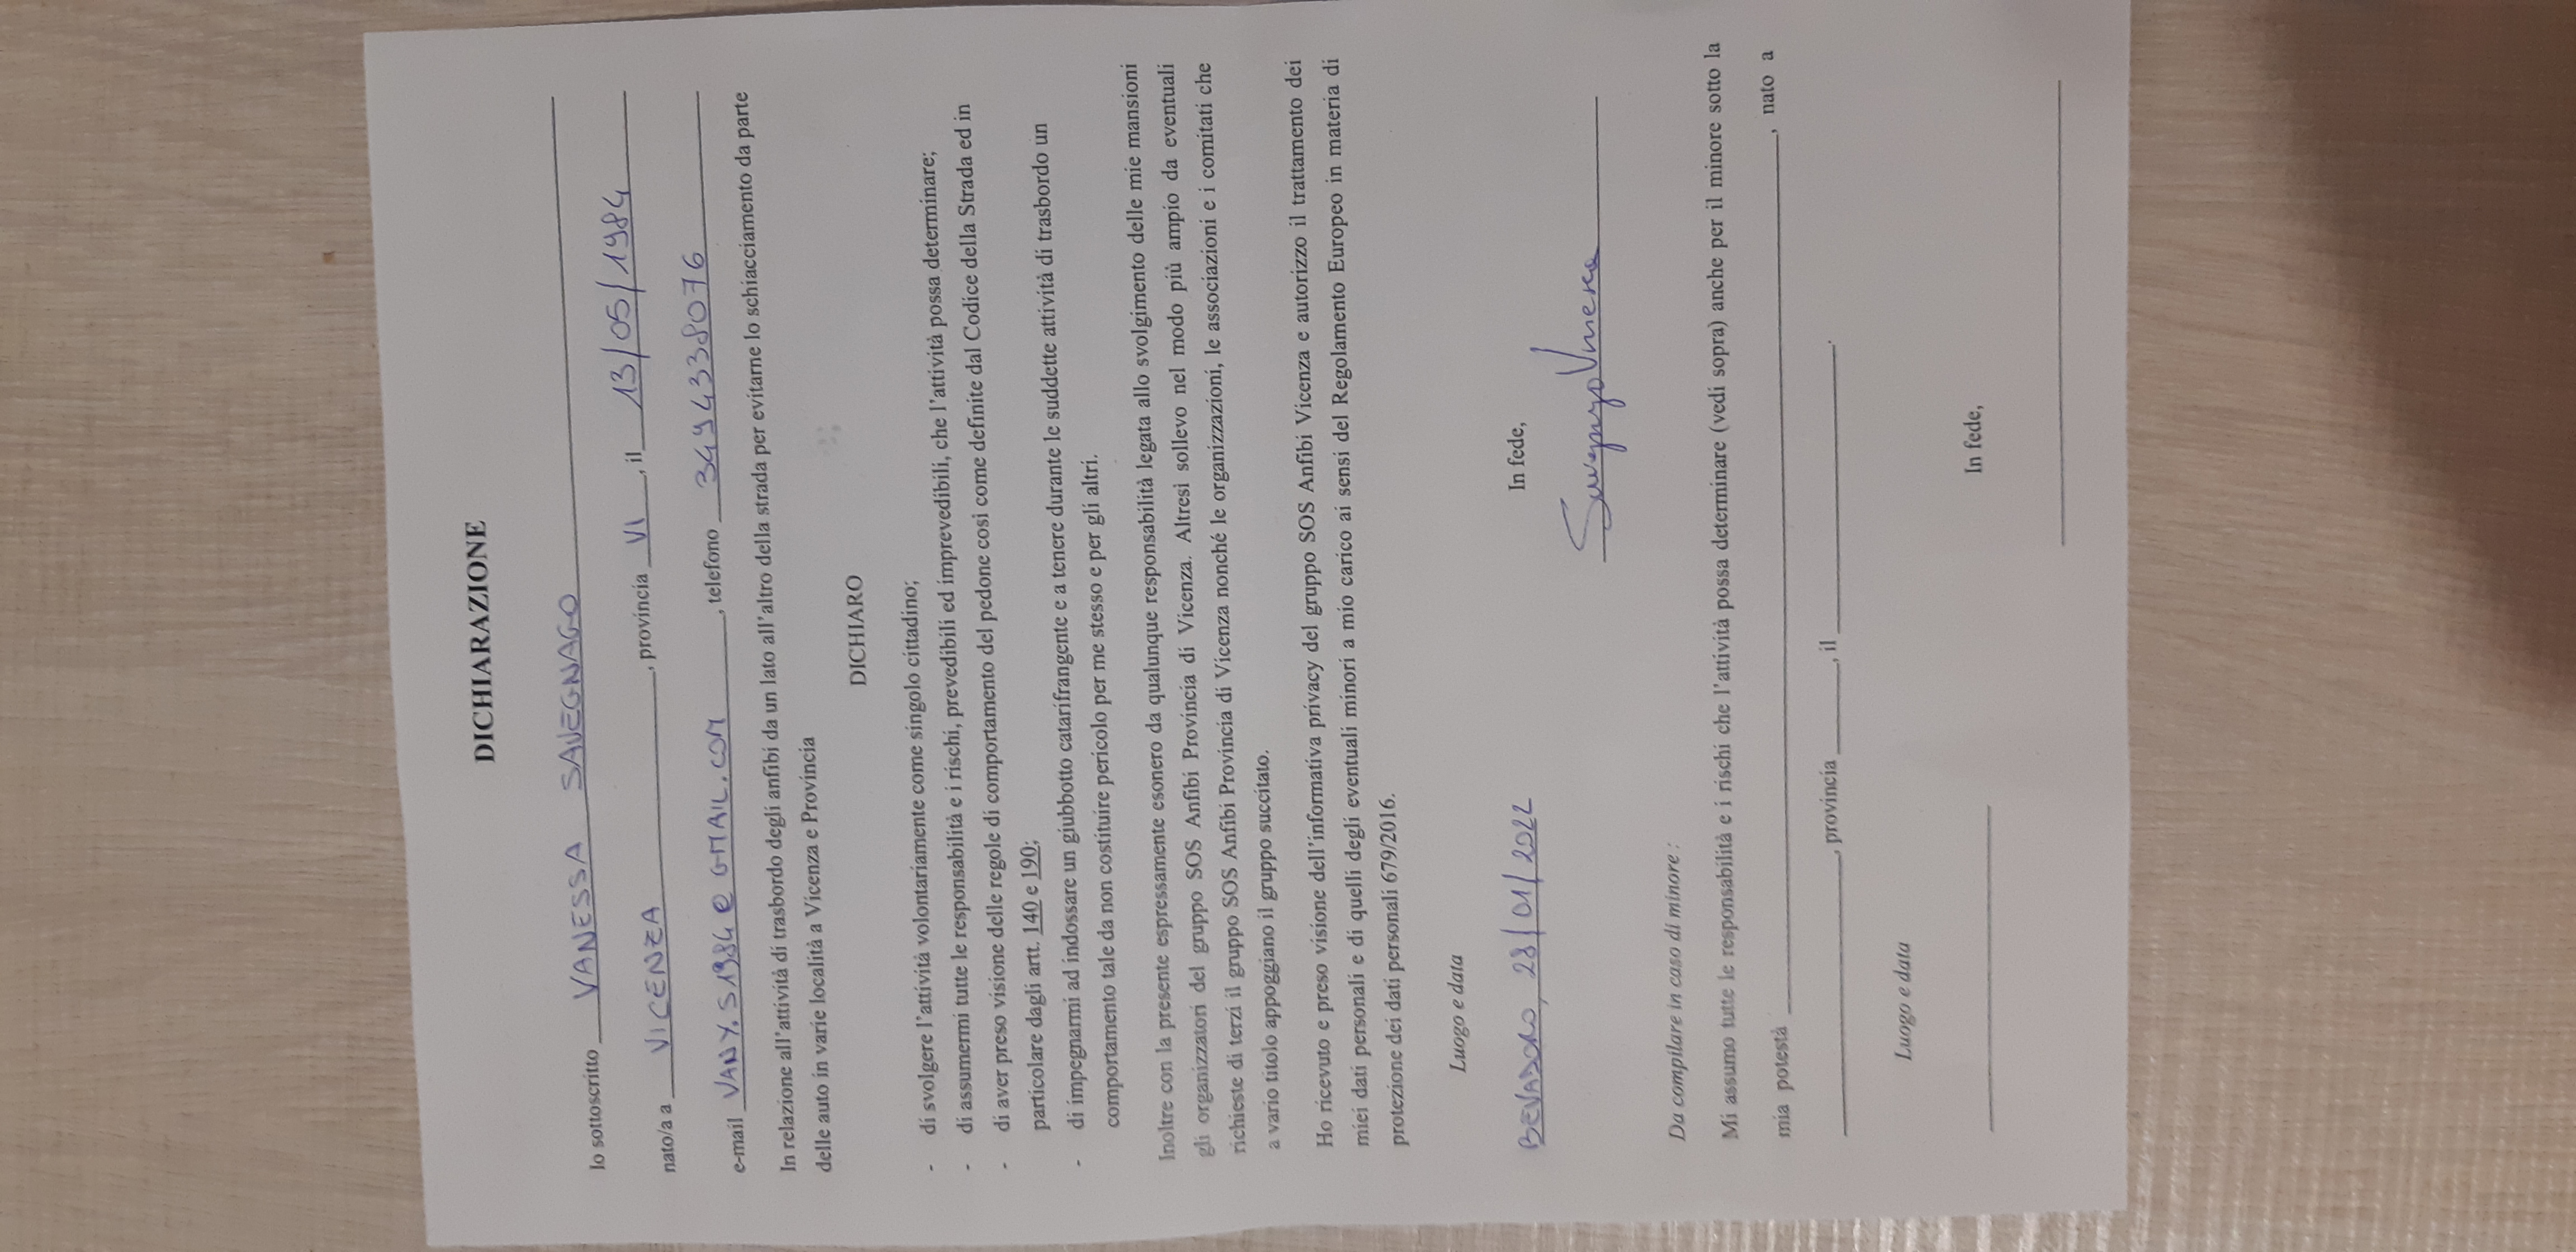 DICHIARAZIONE
Io sottoscritto VANESSA SAVEGNAGO
nato/a a VICENZA, provincia VI, il 13/05/1984
e-mail VANY.S1984@GMAIL.COM, telefono 3494338076
In relazione all'attività di trasbordo degli anfibi da un lato all'altro della strada per evitarne lo schiacciamento da parte
delle auto in varie località a Vicenza e Provincia
DICHIARO
- di svolgere l'attività volontariamente come singolo cittadino;
- di assumermi tutte le responsabilità e i rischi, prevedibili ed imprevedibili, che l'attività possa determinare;
- di aver preso visione delle regole di comportamento del pedone così come definite dal Codice della Strada ed in
particolare dagli artt. 140 e 190;
- di impegnarmi ad indossare un giubbotto catarifrangente e a tenere durante le suddette attività di trasbordo un
comportamento tale da non costituire pericolo per me stesso e per gli altri.
Inoltre con la presente espressamente esonero da qualunque responsabilità legata allo svolgimento delle mie mansioni
gli organizzatori del gruppo SOS Anfibi Provincia di Vicenza. Altresì sollevo nel modo più ampio da eventuali
richieste di terzi il gruppo SOS Anfibi Provincia di Vicenza nonché le organizzazioni, le associazioni e i comitati che
a vario titolo appoggiano il gruppo succitato.
Ho ricevuto e preso visione dell'informativa privacy del gruppo SOS Anfibi Vicenza e autorizzo il trattamento dei
miei dati personali e di quelli degli eventuali minori a mio carico ai sensi del Regolamento Europeo in materia di
protezione dei dati personali 679/2016.
Luogo e data
BEVADORO, 28/01/2022
In fede,
Savegnago Vanessa
Da compilare in caso di minore :
Mi assumo tutte le responsabilità e i rischi che l'attività possa determinare (vedi sopra) anche per il minore sotto la
mia potestà , nato a
, provincia , il .
Luogo e data
In fede,